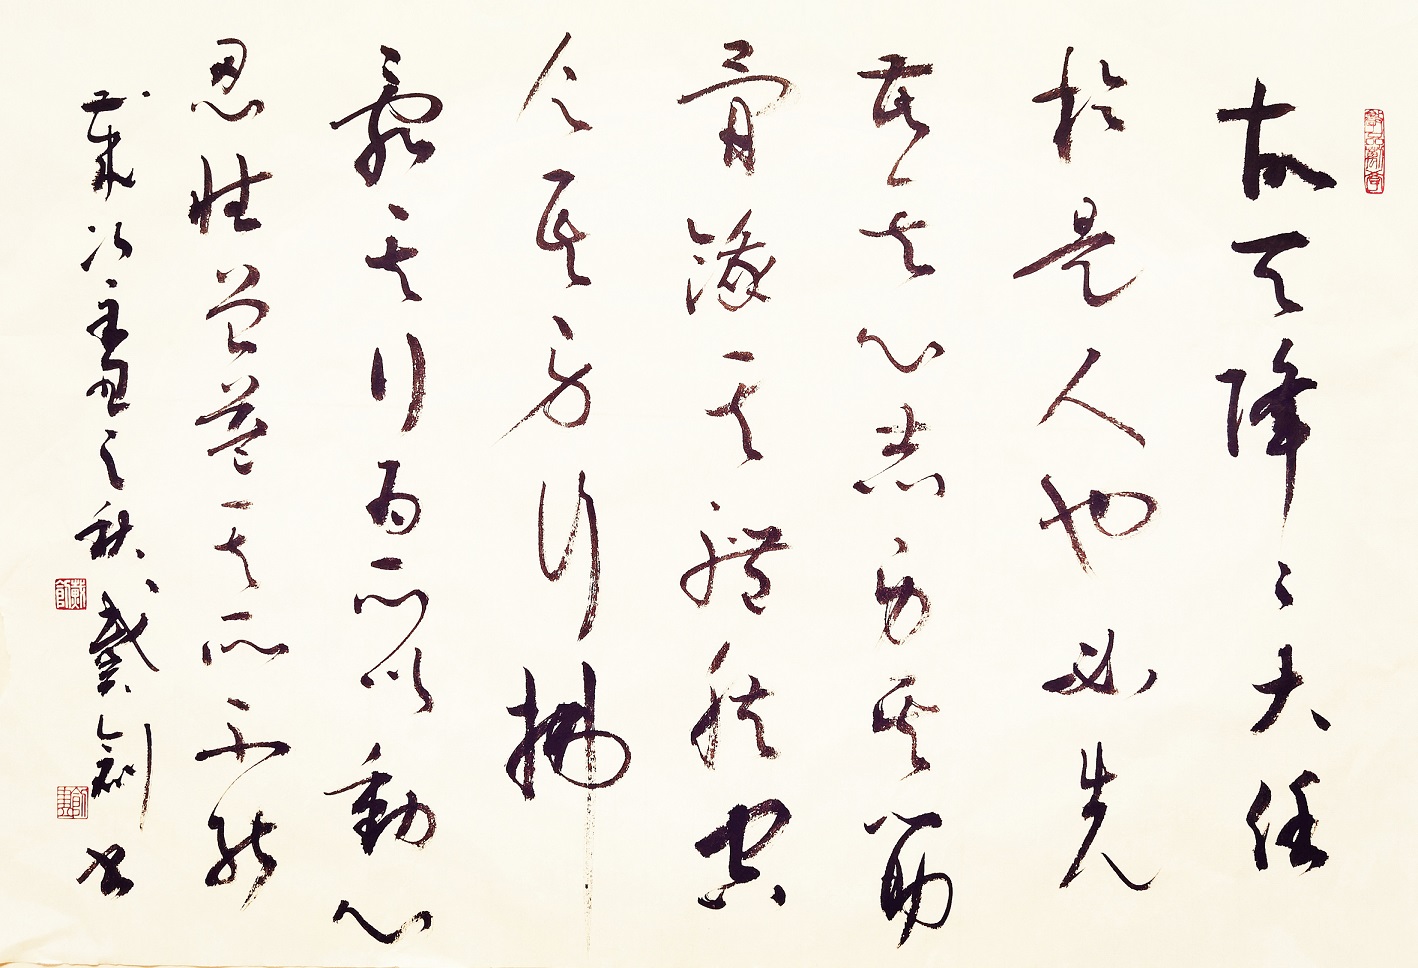 故天降之大任
於是人也必先
苦其心志勞其筋
骨餓其體膚空
乏其身行拂
亂其行為所以動心
忍性曾益其所不能
歲次壬寅之秋戴劍书